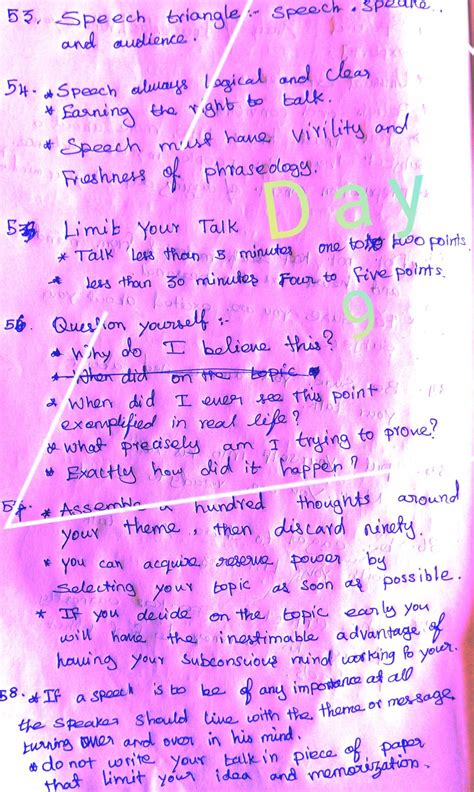 53. Speech triangle :- Speech, speake..
and audience.
54. * Speech always logical and clear
* Earning the right to talk.
* Speech must have virility and
Freshness of phraseology.
55 Limit Your Talk
* Talk less than 5 minutes one to two points.
* less than 30 minutes Four to five points.
Day
9
56. Question yourself :-
* Why do I believe this?
* When did on the topic
* When did I ever see this point
exemplified in real life?
* What precisely am I trying to prove?
* Exactly how did it happen?
57. * Assemble a hundred thoughts around
your theme, then discard ninety.
* you can acquire reserve power by
selecting your topic as soon as possible.
* If you decide on the topic early you
will have the inestimable advantage of
having your subconscious mind working for your.
58. * If a speech is to be of any importance at all
the speaker should live with the theme or message
turning over and over in his mind.
* do not write your talk in piece of paper
that limit your idea and memorization.